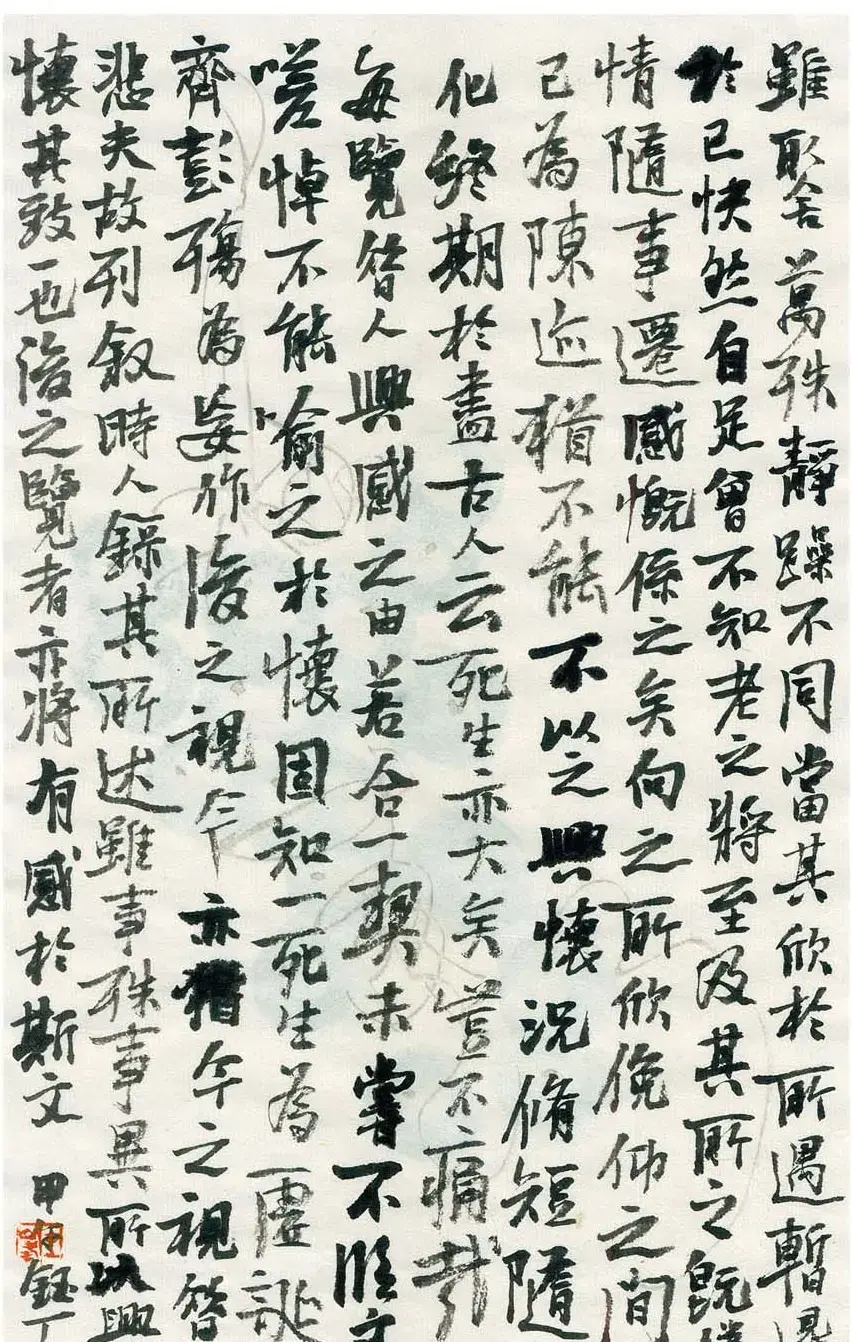 雖取舍萬殊靜躁不同當其欣於所遇暫
於己快然自足曾不知老之將至及其所之既
情隨事遷感慨係之矣向之所欣俛仰之間
已為陳迹猶不能不以之興懷況脩短隨
化終期於盡古人云死生亦大矣豈不痛哉
每覽昔人興感之由若合一契未嘗不臨文
嗟悼不能喻之於懷固知一死生為虛誕
齊彭殤為妄作後之視今亦猶今之視昔
悲夫故列叙時人錄其所述雖事殊事異所以興
懷其致一也後之覽者亦將有感於斯文 甲午鈺